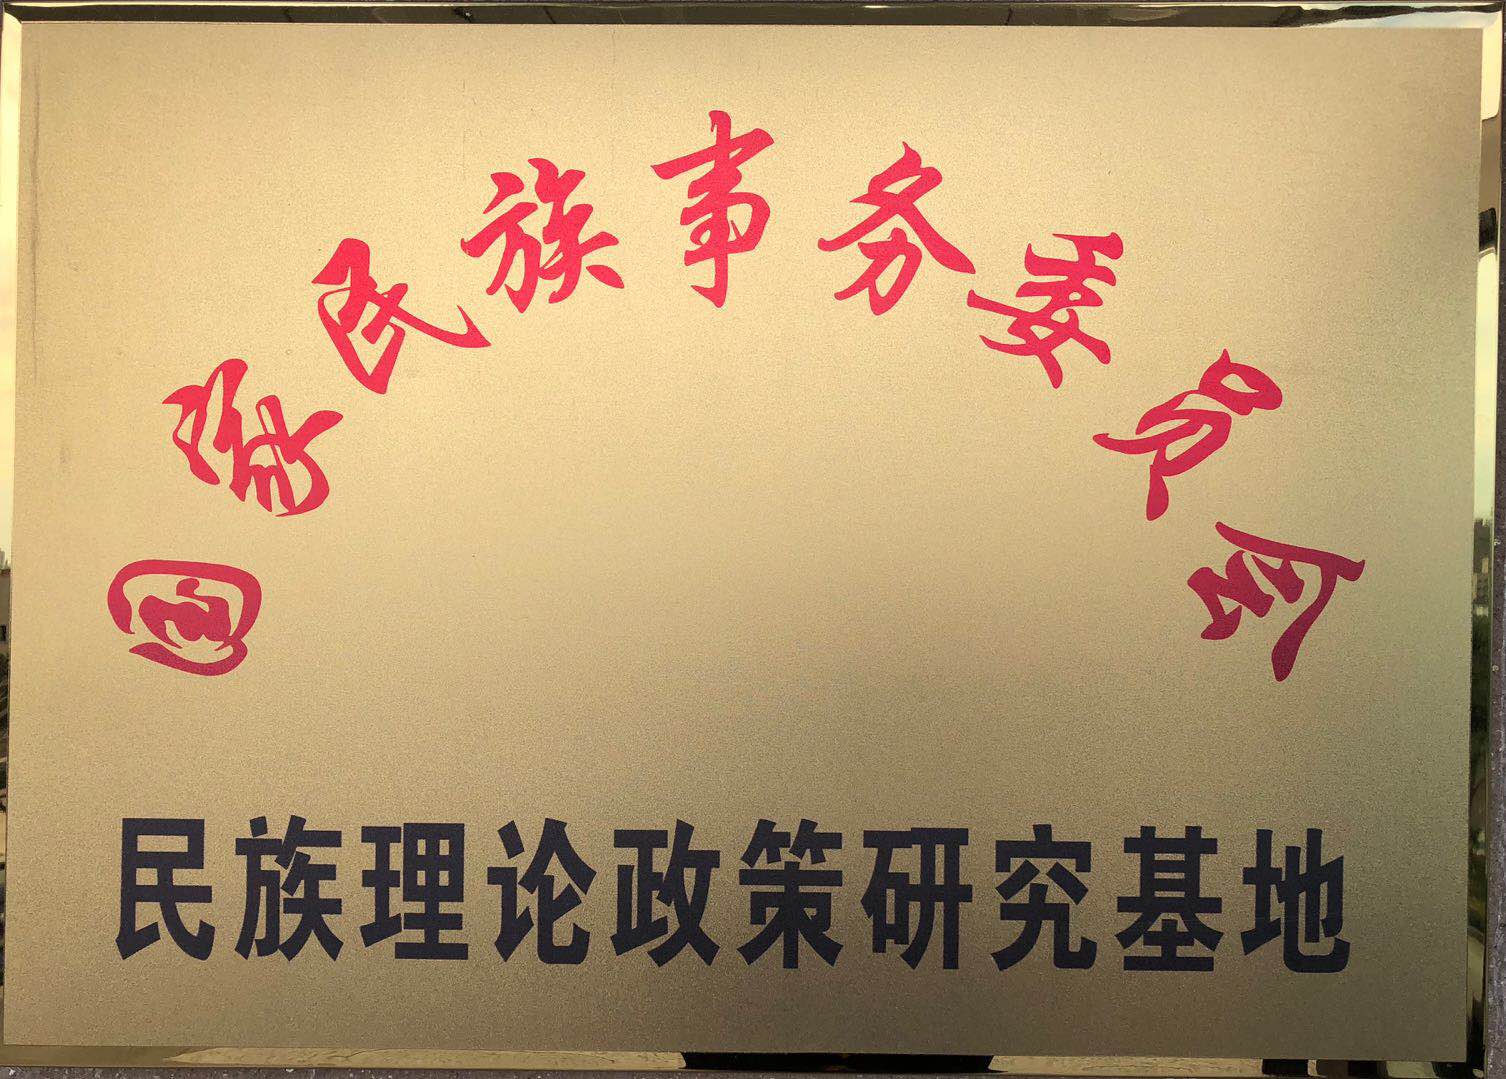 国家民族事务委员会
民族理论政策研究基地